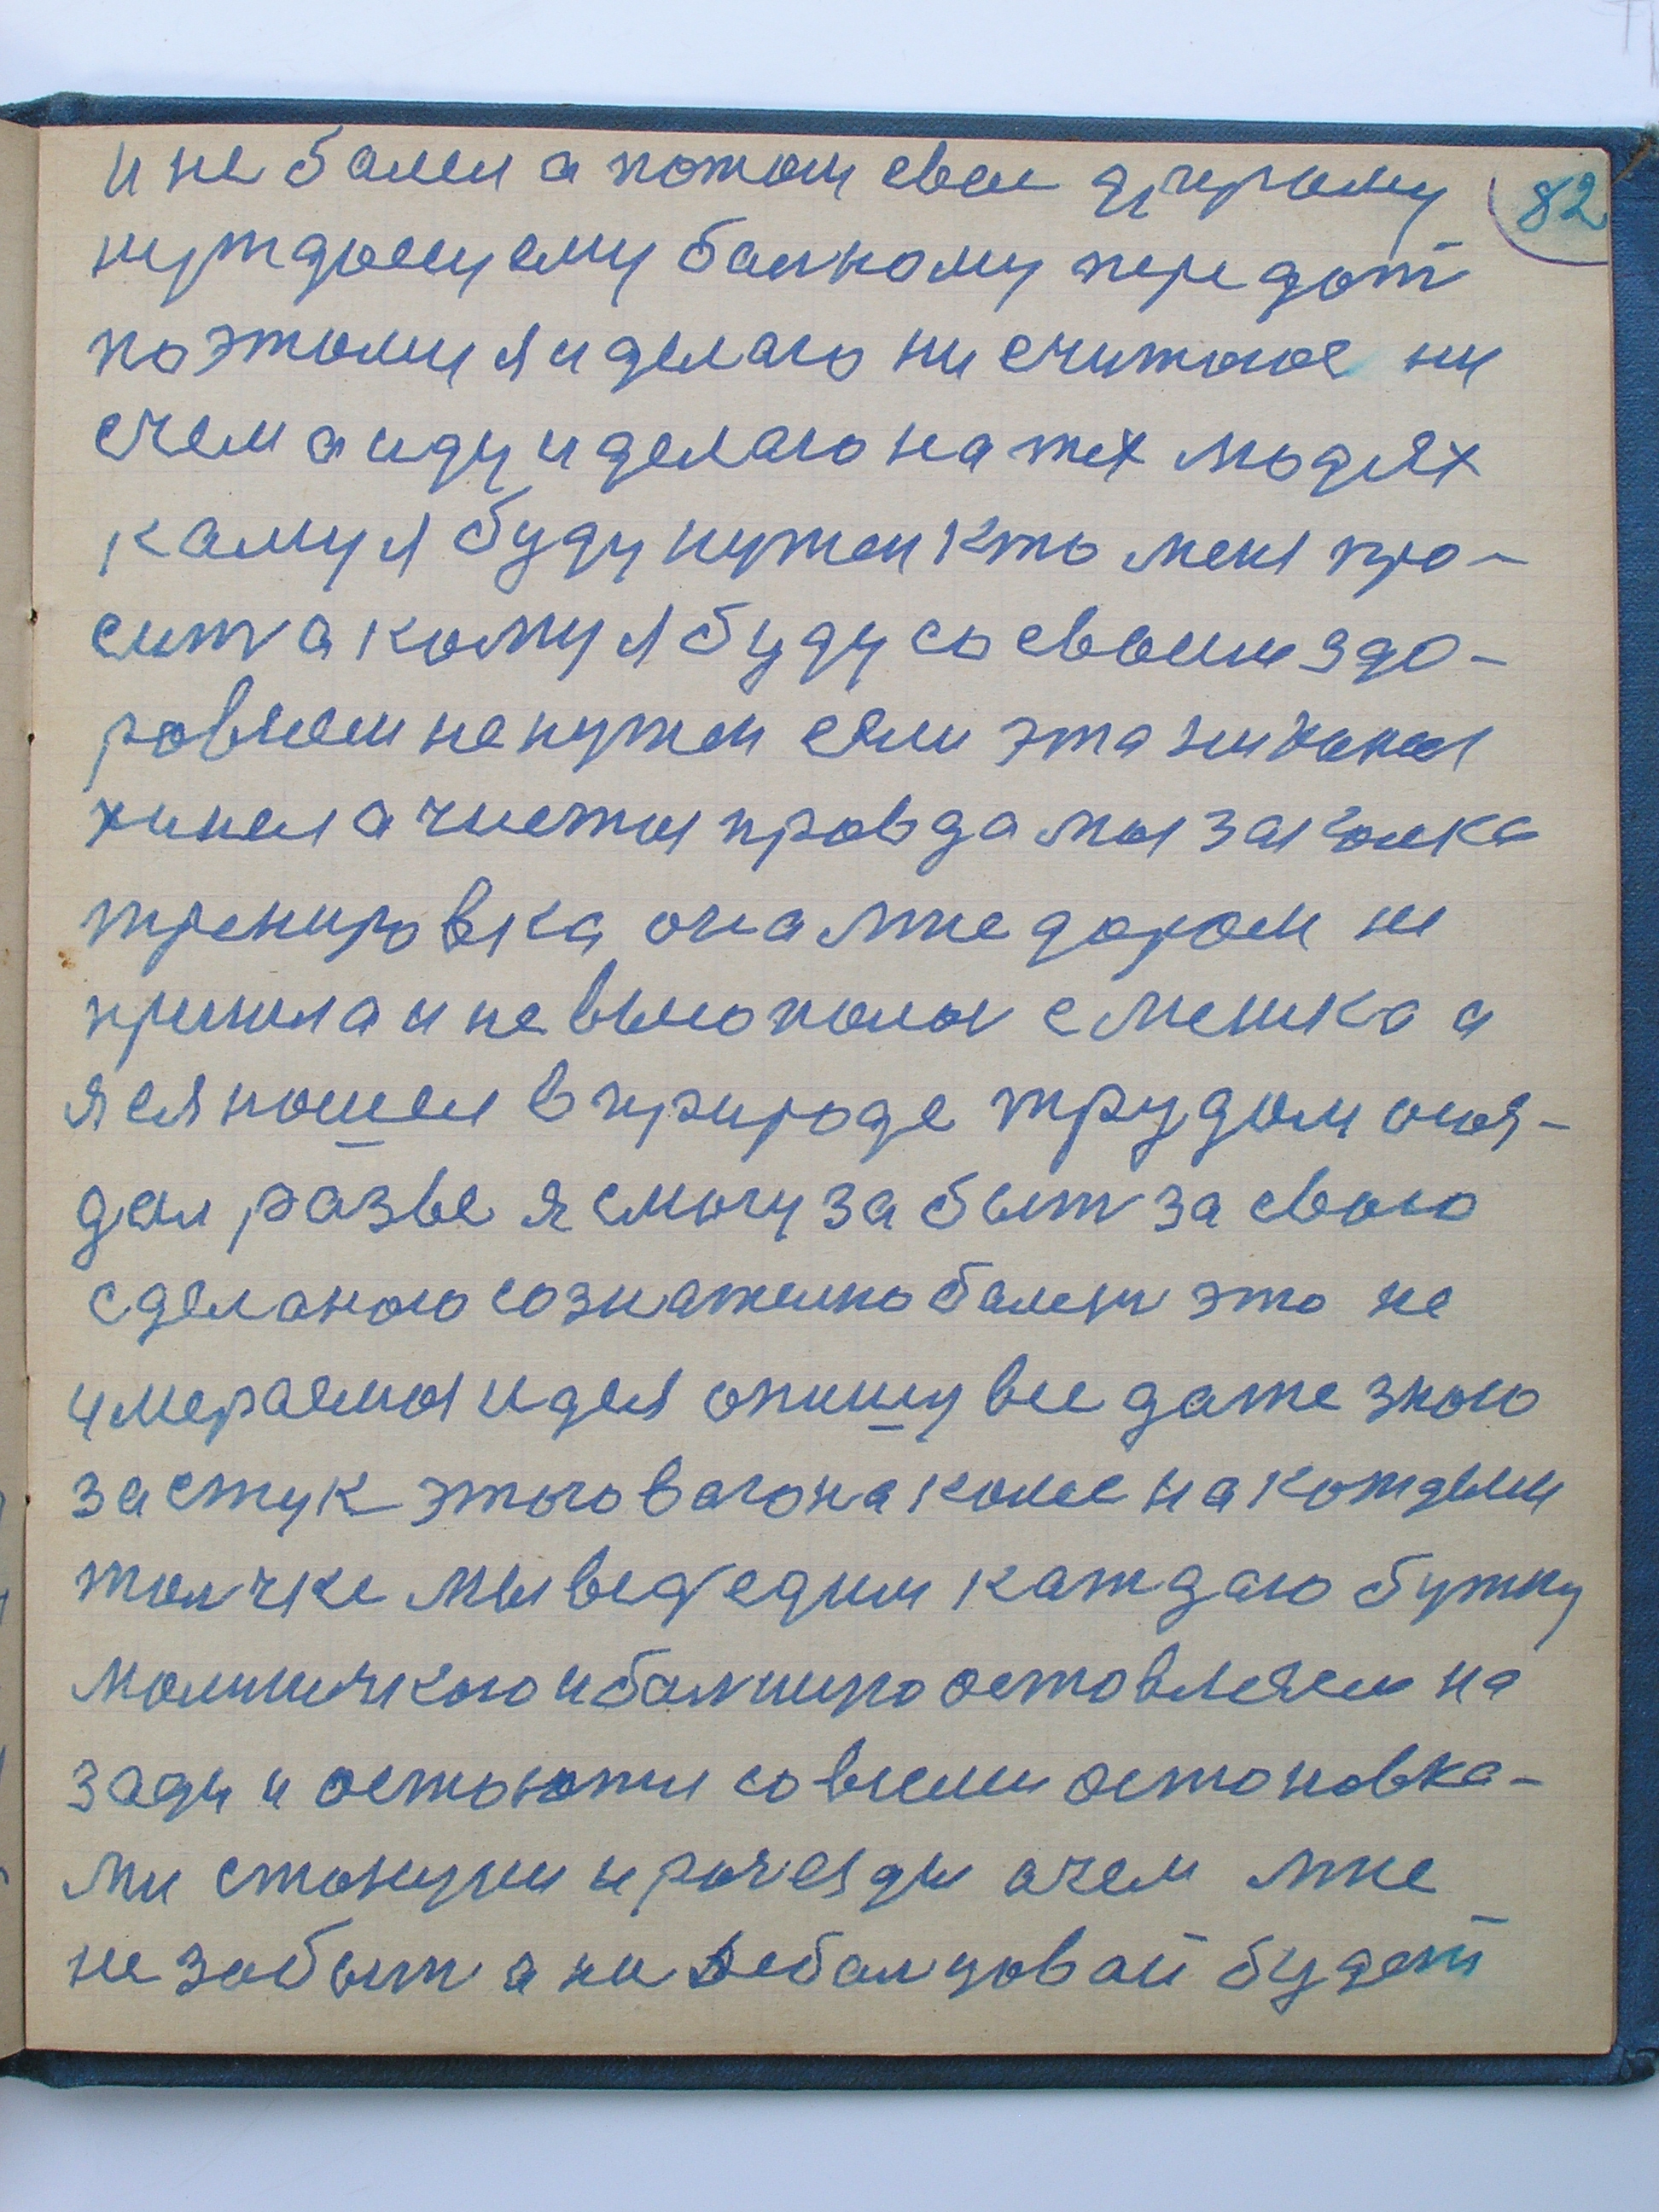 82
и не балел а потом свое другому
нуждющуему балному передат
поэтому я и делаю ни считаюс ни
счем а иду и делаю на тех людях
каму я буду нужен кто меня про-
сит а кому я буду со своим здо-
ровяем не нужен если эта ни какая
хинея а чистая правда моя закалка
тренировка она мне даром не
пришла и не выюполы с мешка а
я ея нашел в природе трудом ония-
дал разве я смогу забыт за свою
сделаною сознателно балезн это не
умераемая идея опишу все даже знаю
за стук этого вагона колес на кождым
толчке мы вед едим каждаю бутку
малиничкою и балшиую оставляем на
зади и остаются со всеми остановка-
ми станции и разезди а чем мне
не забыт а на Дебалцовай будет